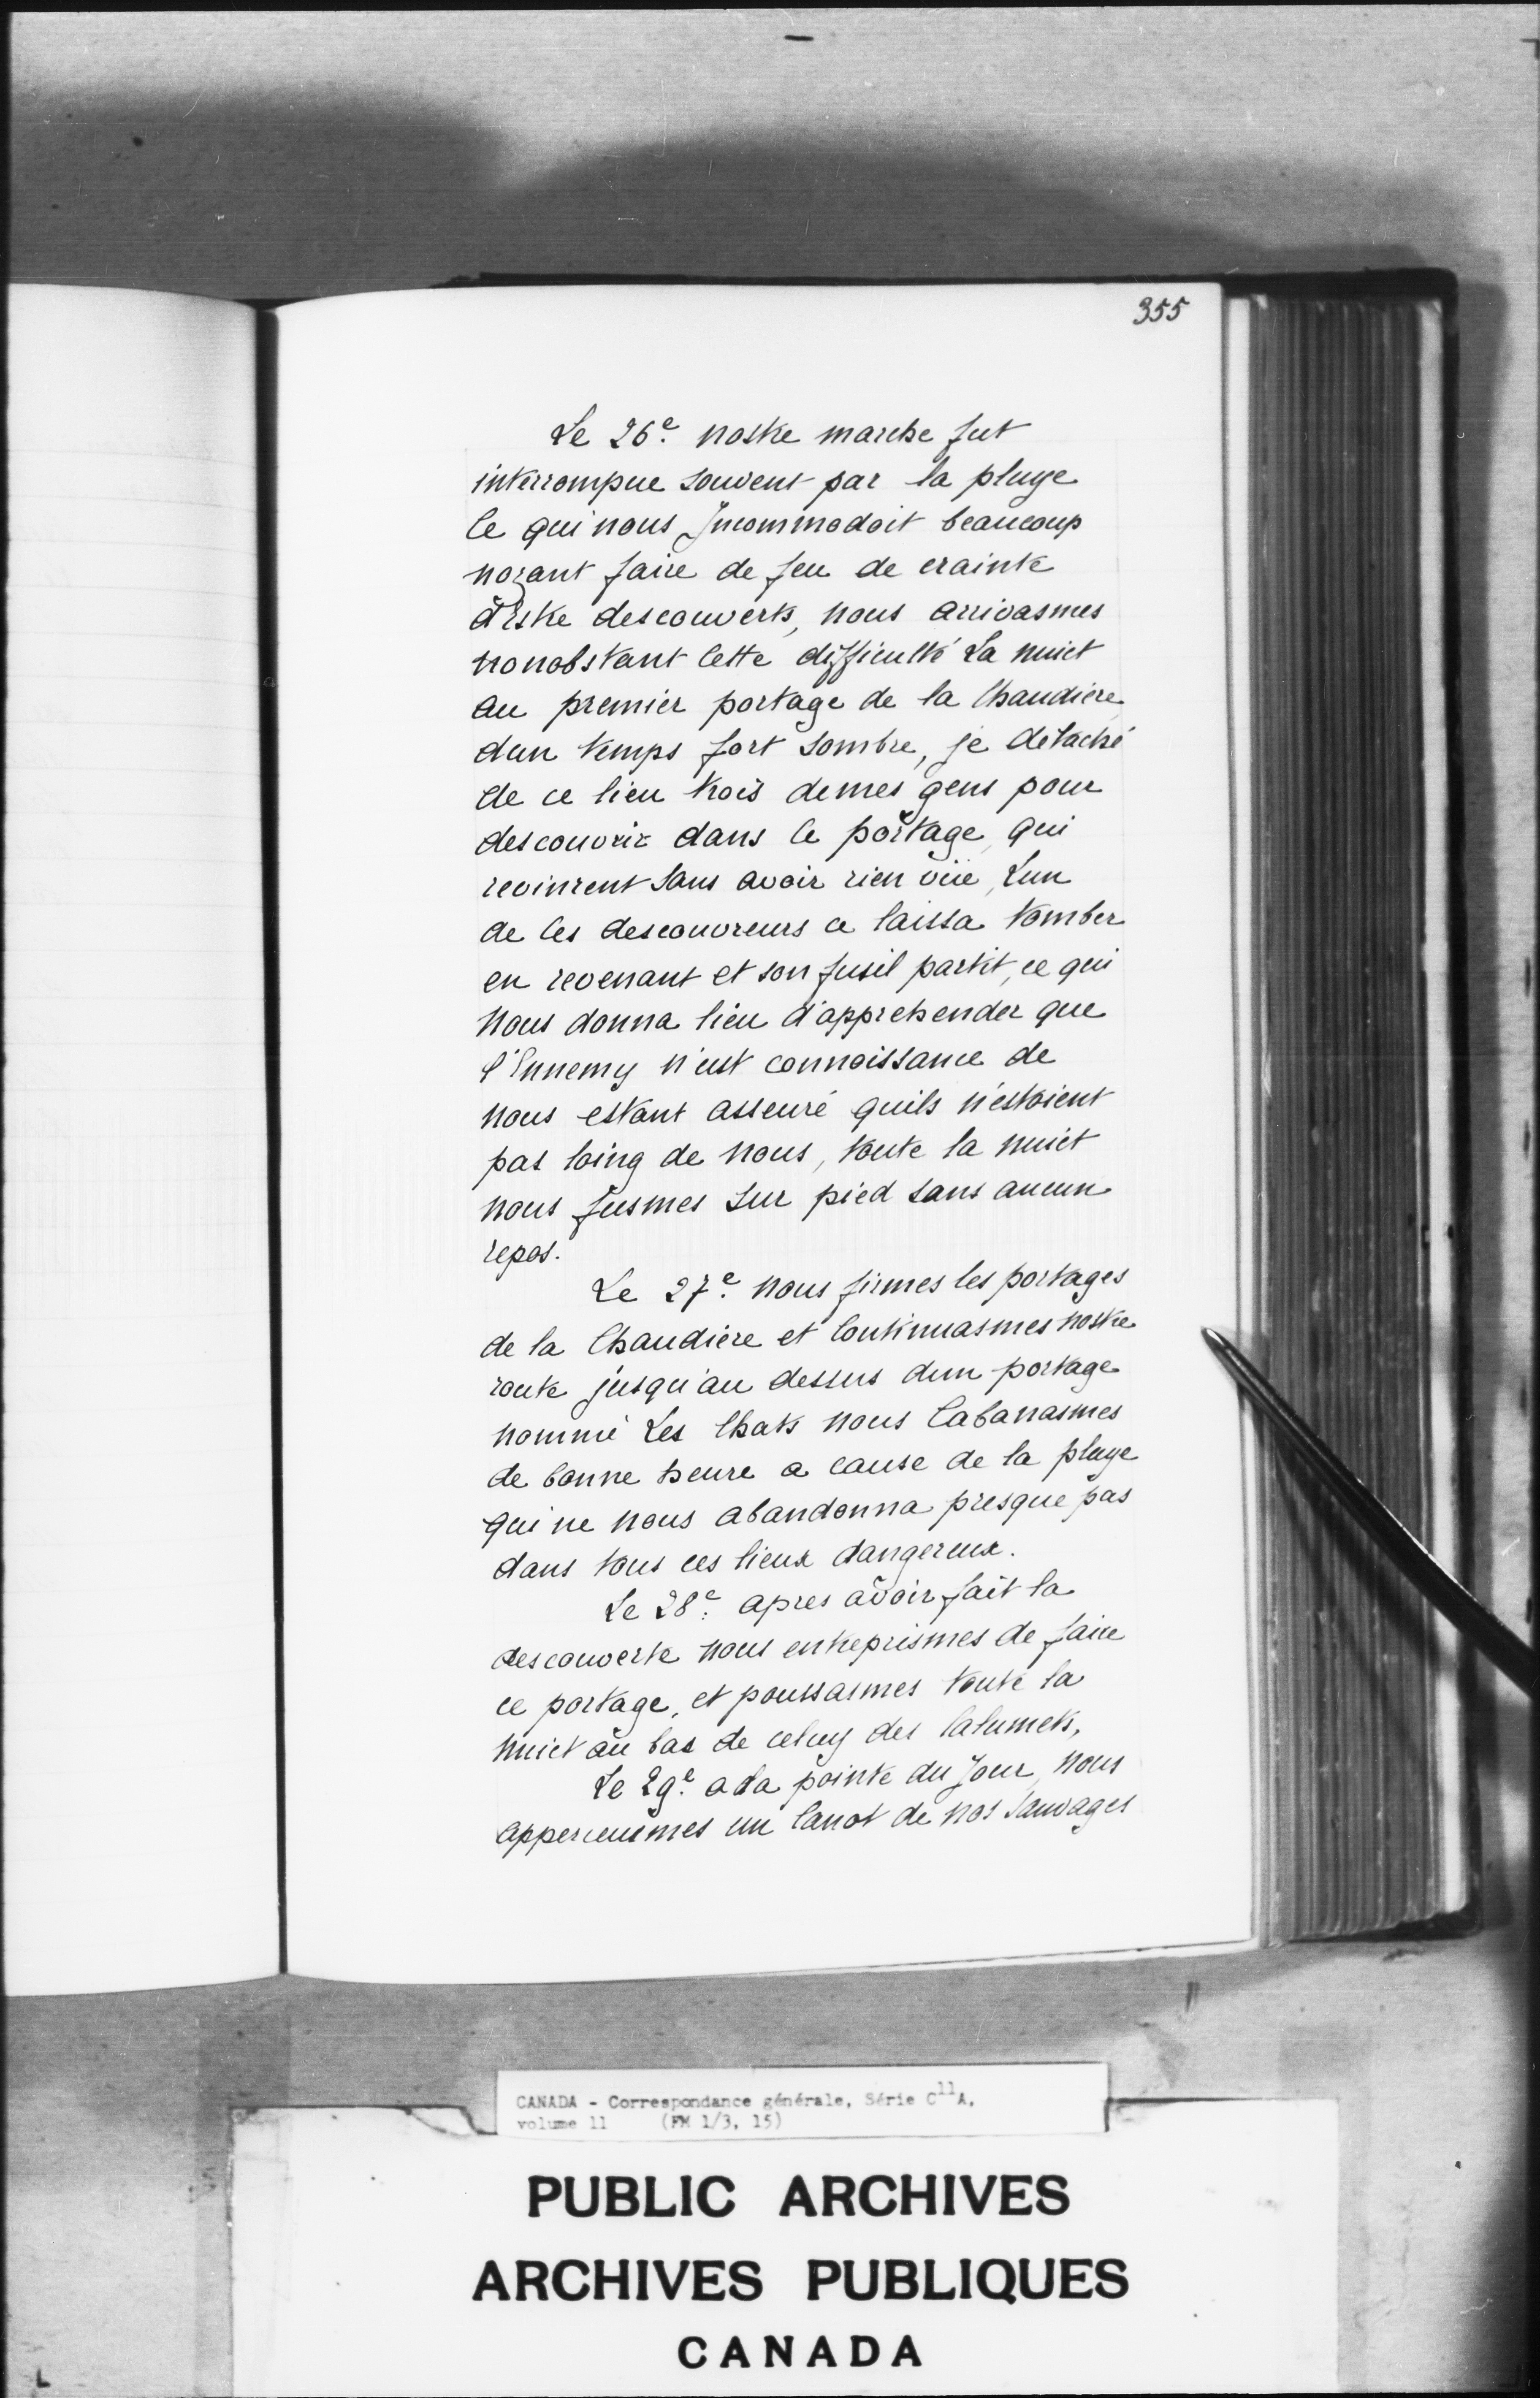 355
Le 26e. nostre marche fut
interrompue souvent par la pluye
Ce qui nous Jncommodoit beaucoup
nozant faire de feu de crainte
d'Estre descouverts, nous arrivasmes
nonobstant Cette difficulté La nuict
au premier portage de la Chaudiere
dun temps fort sombre, je détaché
de ce lieu trois demes gens pour
descouvrir dans le portage, qui
revinrent sans avoir rien vüe, Lun
de Ces descouvreurs ce laissa tomber
en revenant et son fusil partit, ce qui
Nous donna lieu d'apprehender que
l'Ennemy n'eust connoissance de
nous estant asseuré quils n'estoient
pas loing de nous, toute la nuict
nous fusmes sur pied sans aucun
repos.
Le 27e. nous fismes les portages
de la Chaudiere et Continuasmes nostre
route jusqu'au dessus dun portage
nommé Les Chats nous Cabanasmes
de bonne heure a cause de la pluye
qui ne nous abandonna presque pas
dans tous ces lieux dangereux.
Le 28e. apres avoir fait la
descouverte nous entreprismes de faire
ce portage, et poussasmes toute la
nuict au bas de celuy des Calumets,
Le 29e. a La pointe du Jour, nous
apperceusmes un Canot de nos Sauvages
CANADA - Correspondance générale, Série C11A,
volume 11 (FM 1/3, 15)
PUBLIC ARCHIVES
ARCHIVES PUBLIQUES
CANADA